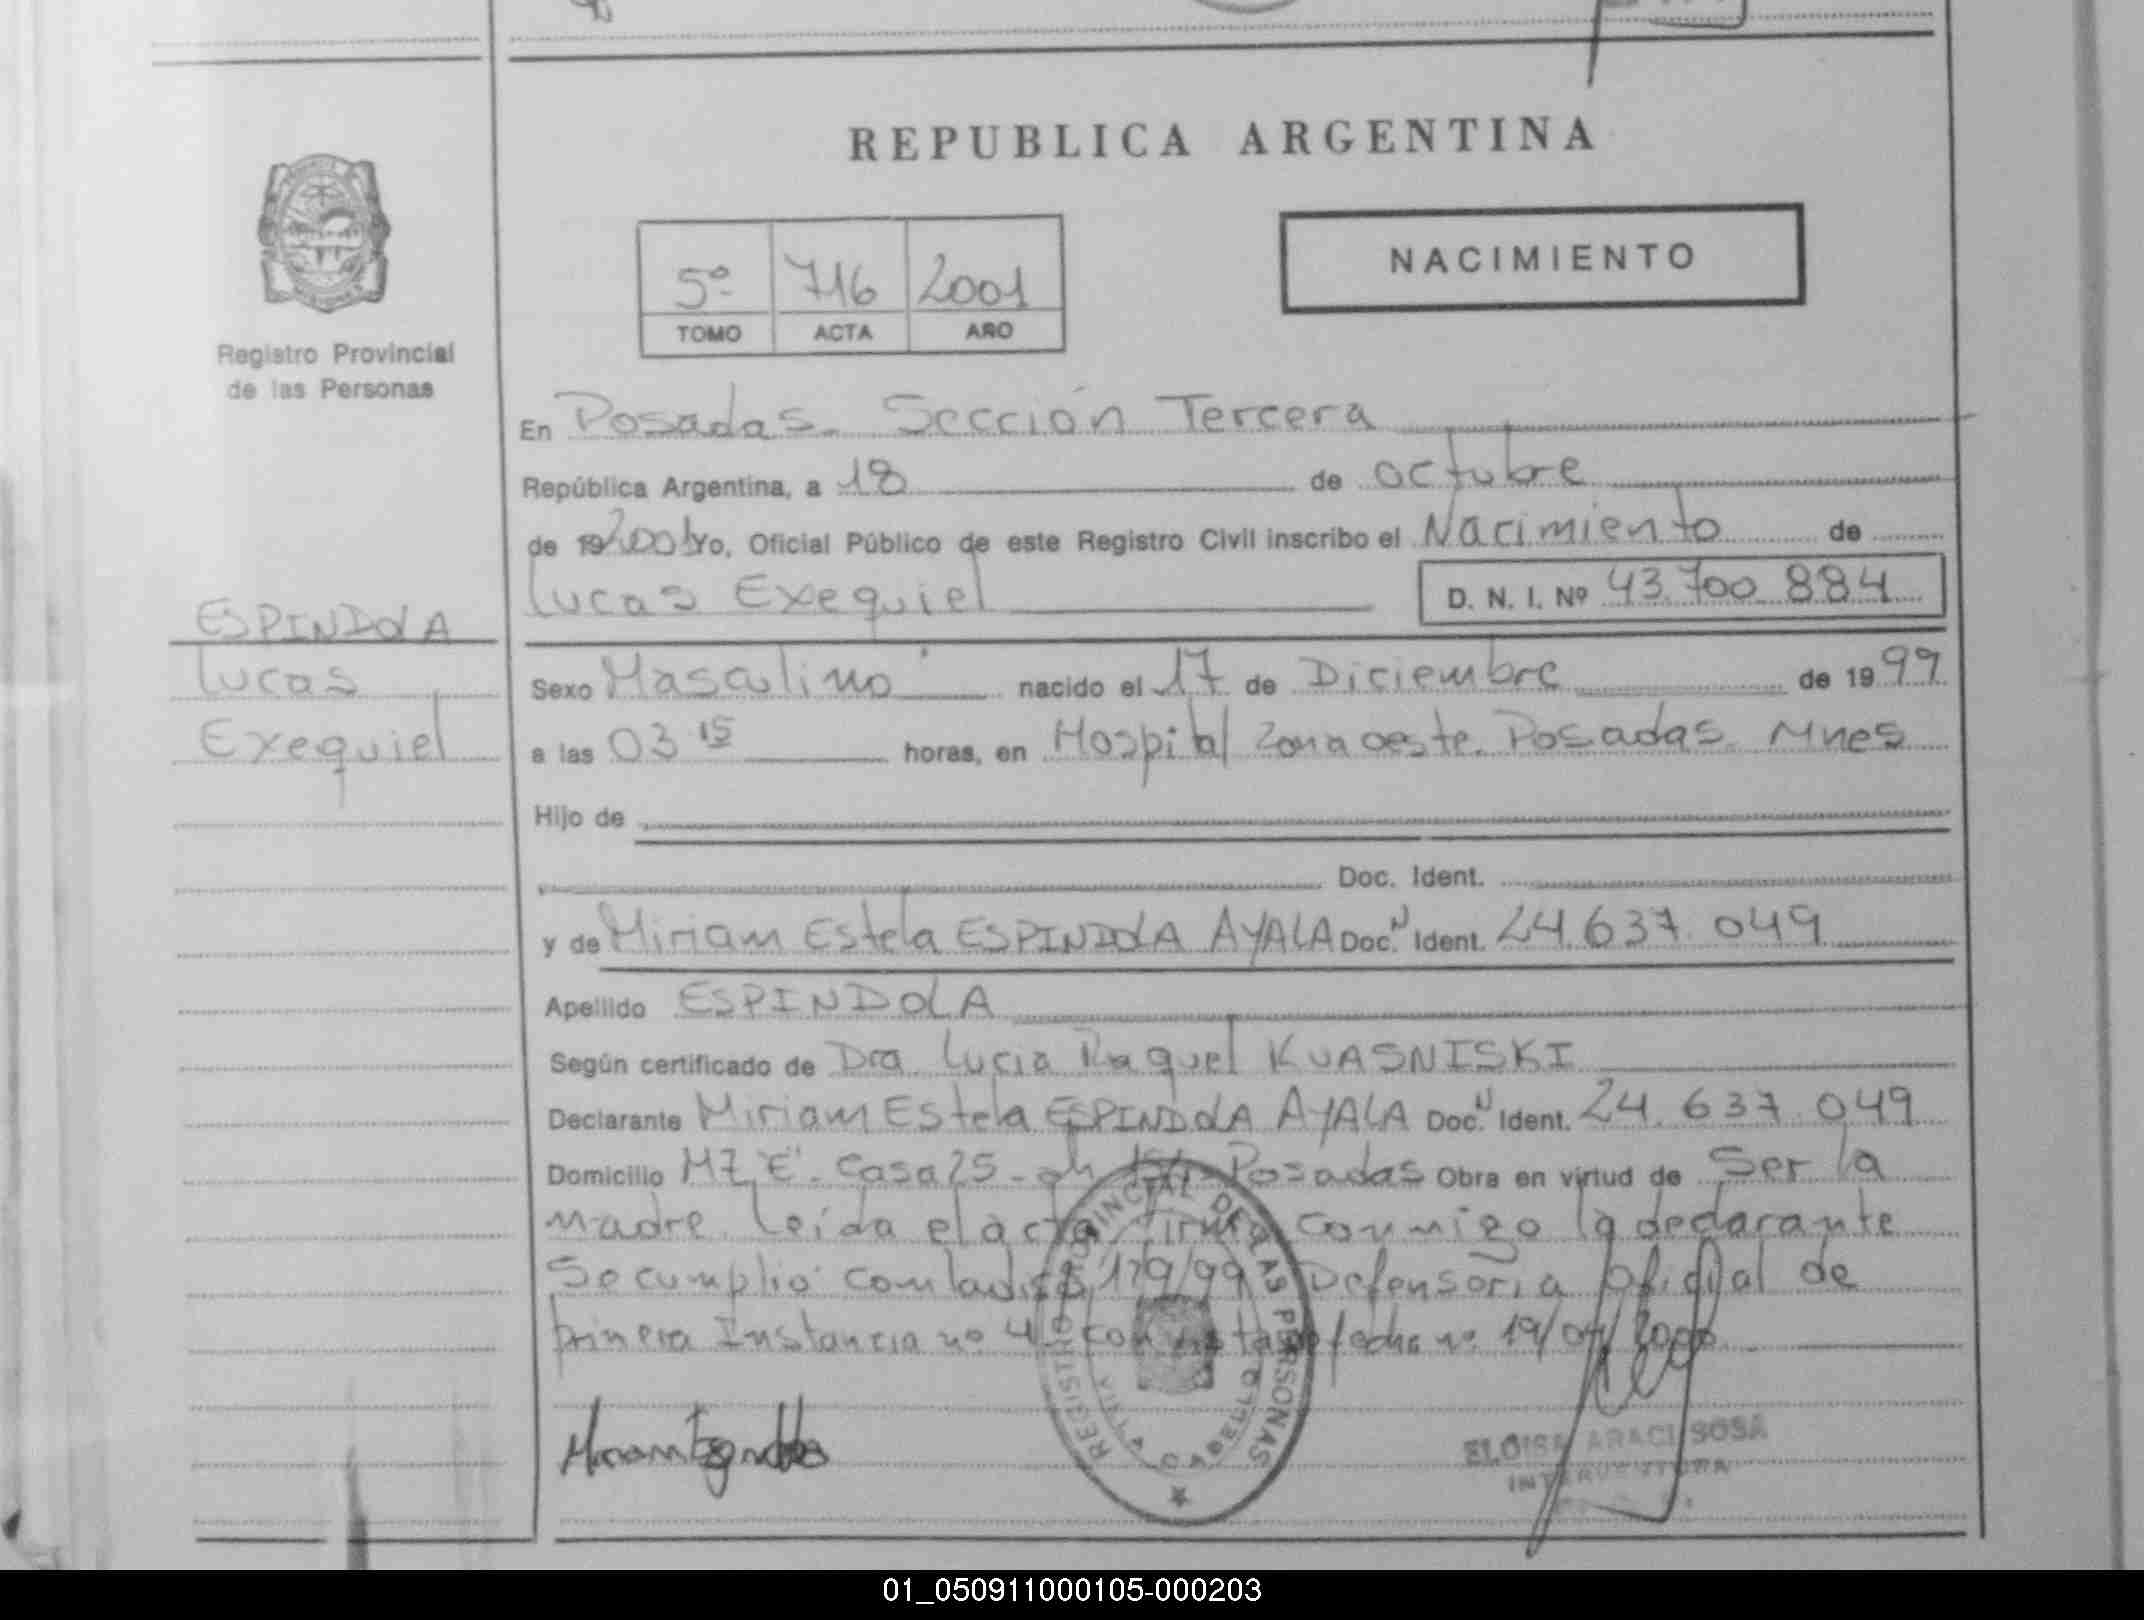 REPUBLICA ARGENTINA
NACIMIENTO
5º 716 2001
TOMO ACTA AÑO
Registro Provincial
de las Personas
En Posadas. Sección Tercera
República Argentina, a 18 de octubre
de 192001 Yo, Oficial Público de este Registro Civil inscribo el Nacimiento de
Lucas Exequiel D. N. I. Nº 43.700.884
ESPINDOLA
Lucas
Exequiel
Sexo Masculino nacido el 17 de Diciembre de 1999
a las 03 15 horas, en Hospital Zona oeste. Posadas. Mnes
Hijo de
Doc. Ident.
y de Miriam Estela ESPINDOLA AYALA Doc. N Ident. 24.637.049
Apellido ESPINDOLA
Según certificado de Dra. Lucia Raquel KUASNISKI
Declarante Miriam Estela ESPINDOLA AYALA Doc. N Ident. 24.637.049
Domicilio MZ "E". Casa 25 - Posadas Obra en virtud de Ser la
madre. Leída el acta firma conmigo la declarante
Se cumplió con la 179/99 Defensoria Oficial de
primera Instancia nº 4 con fecha 19/ 2000
REGISTRO PROVINCIAL DE LAS PERSONAS
VILLA CABELLO
ELOISA ARACI SOSA
INTERVENTORA
01_050911000105-000203